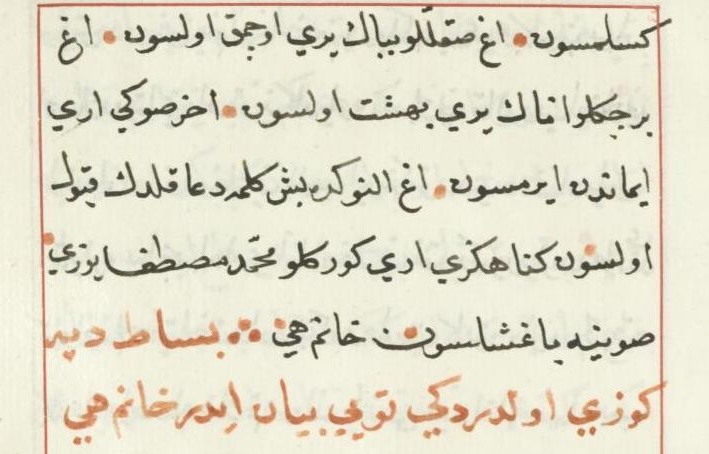 كسلمسون اغ صقللو بباك يري اوجمق اولسون اغ
برجكلو اناك يري بهشت اولسون اخر صوكي اري
ايماندن ايرمسون اغ النوكده بش كلمه دعا قلدك قبول
اولسون كناهكزي اري كوركلو محمّد مصطفا يوزي
صوينه باغشلسون خانم هي بساط دپه
كوزي اولدردكي بويي بيان ايدر خانم هي